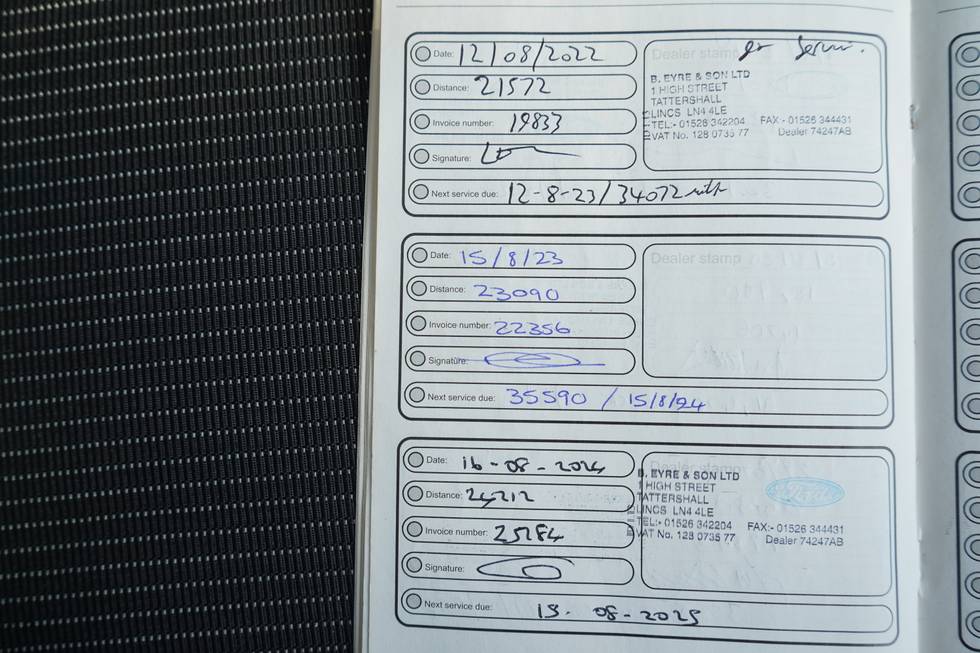 Date: 12/08/2022
Distance: 21572
Invoice number: 19833
Signature:
Next service due: 12-8-23/34072
Dealer stamp
B. EYRE & SON LTD
1 HIGH STREET
TATTERSHALL
LINCS LN4 4LE
TEL:- 01526 342204 FAX - 01526 344431
VAT No. 128 0735 77 Dealer 74247AB
Date: 15/8/23
Distance: 23090
Invoice number: 22356
Signature:
Next service due: 35590 / 15/8/24
Dealer stamp
Date: 16-08-2024
Distance: 24212
Invoice number: 25284
Signature:
Next service due: 15-08-2025
Dealer stamp
B. EYRE & SON LTD
1 HIGH STREET
TATTERSHALL
LINCS LN4 4LE
TEL:- 01526 342204 FAX:- 01526 344431
VAT No. 128 0735 77 Dealer 74247AB
Ford